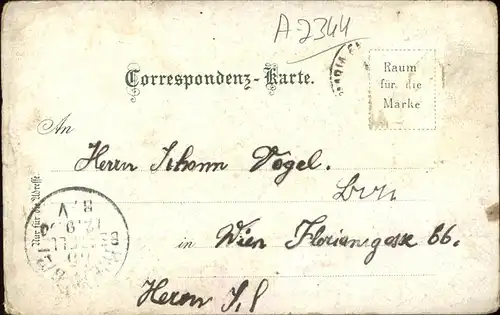 A-2344
Correspondenz-Karte.
Raum
für die
Marke
An
Herrn Johann Vogel.
in Wien Floriansgasse 66.
Nur für die Adresse
Herrn J,